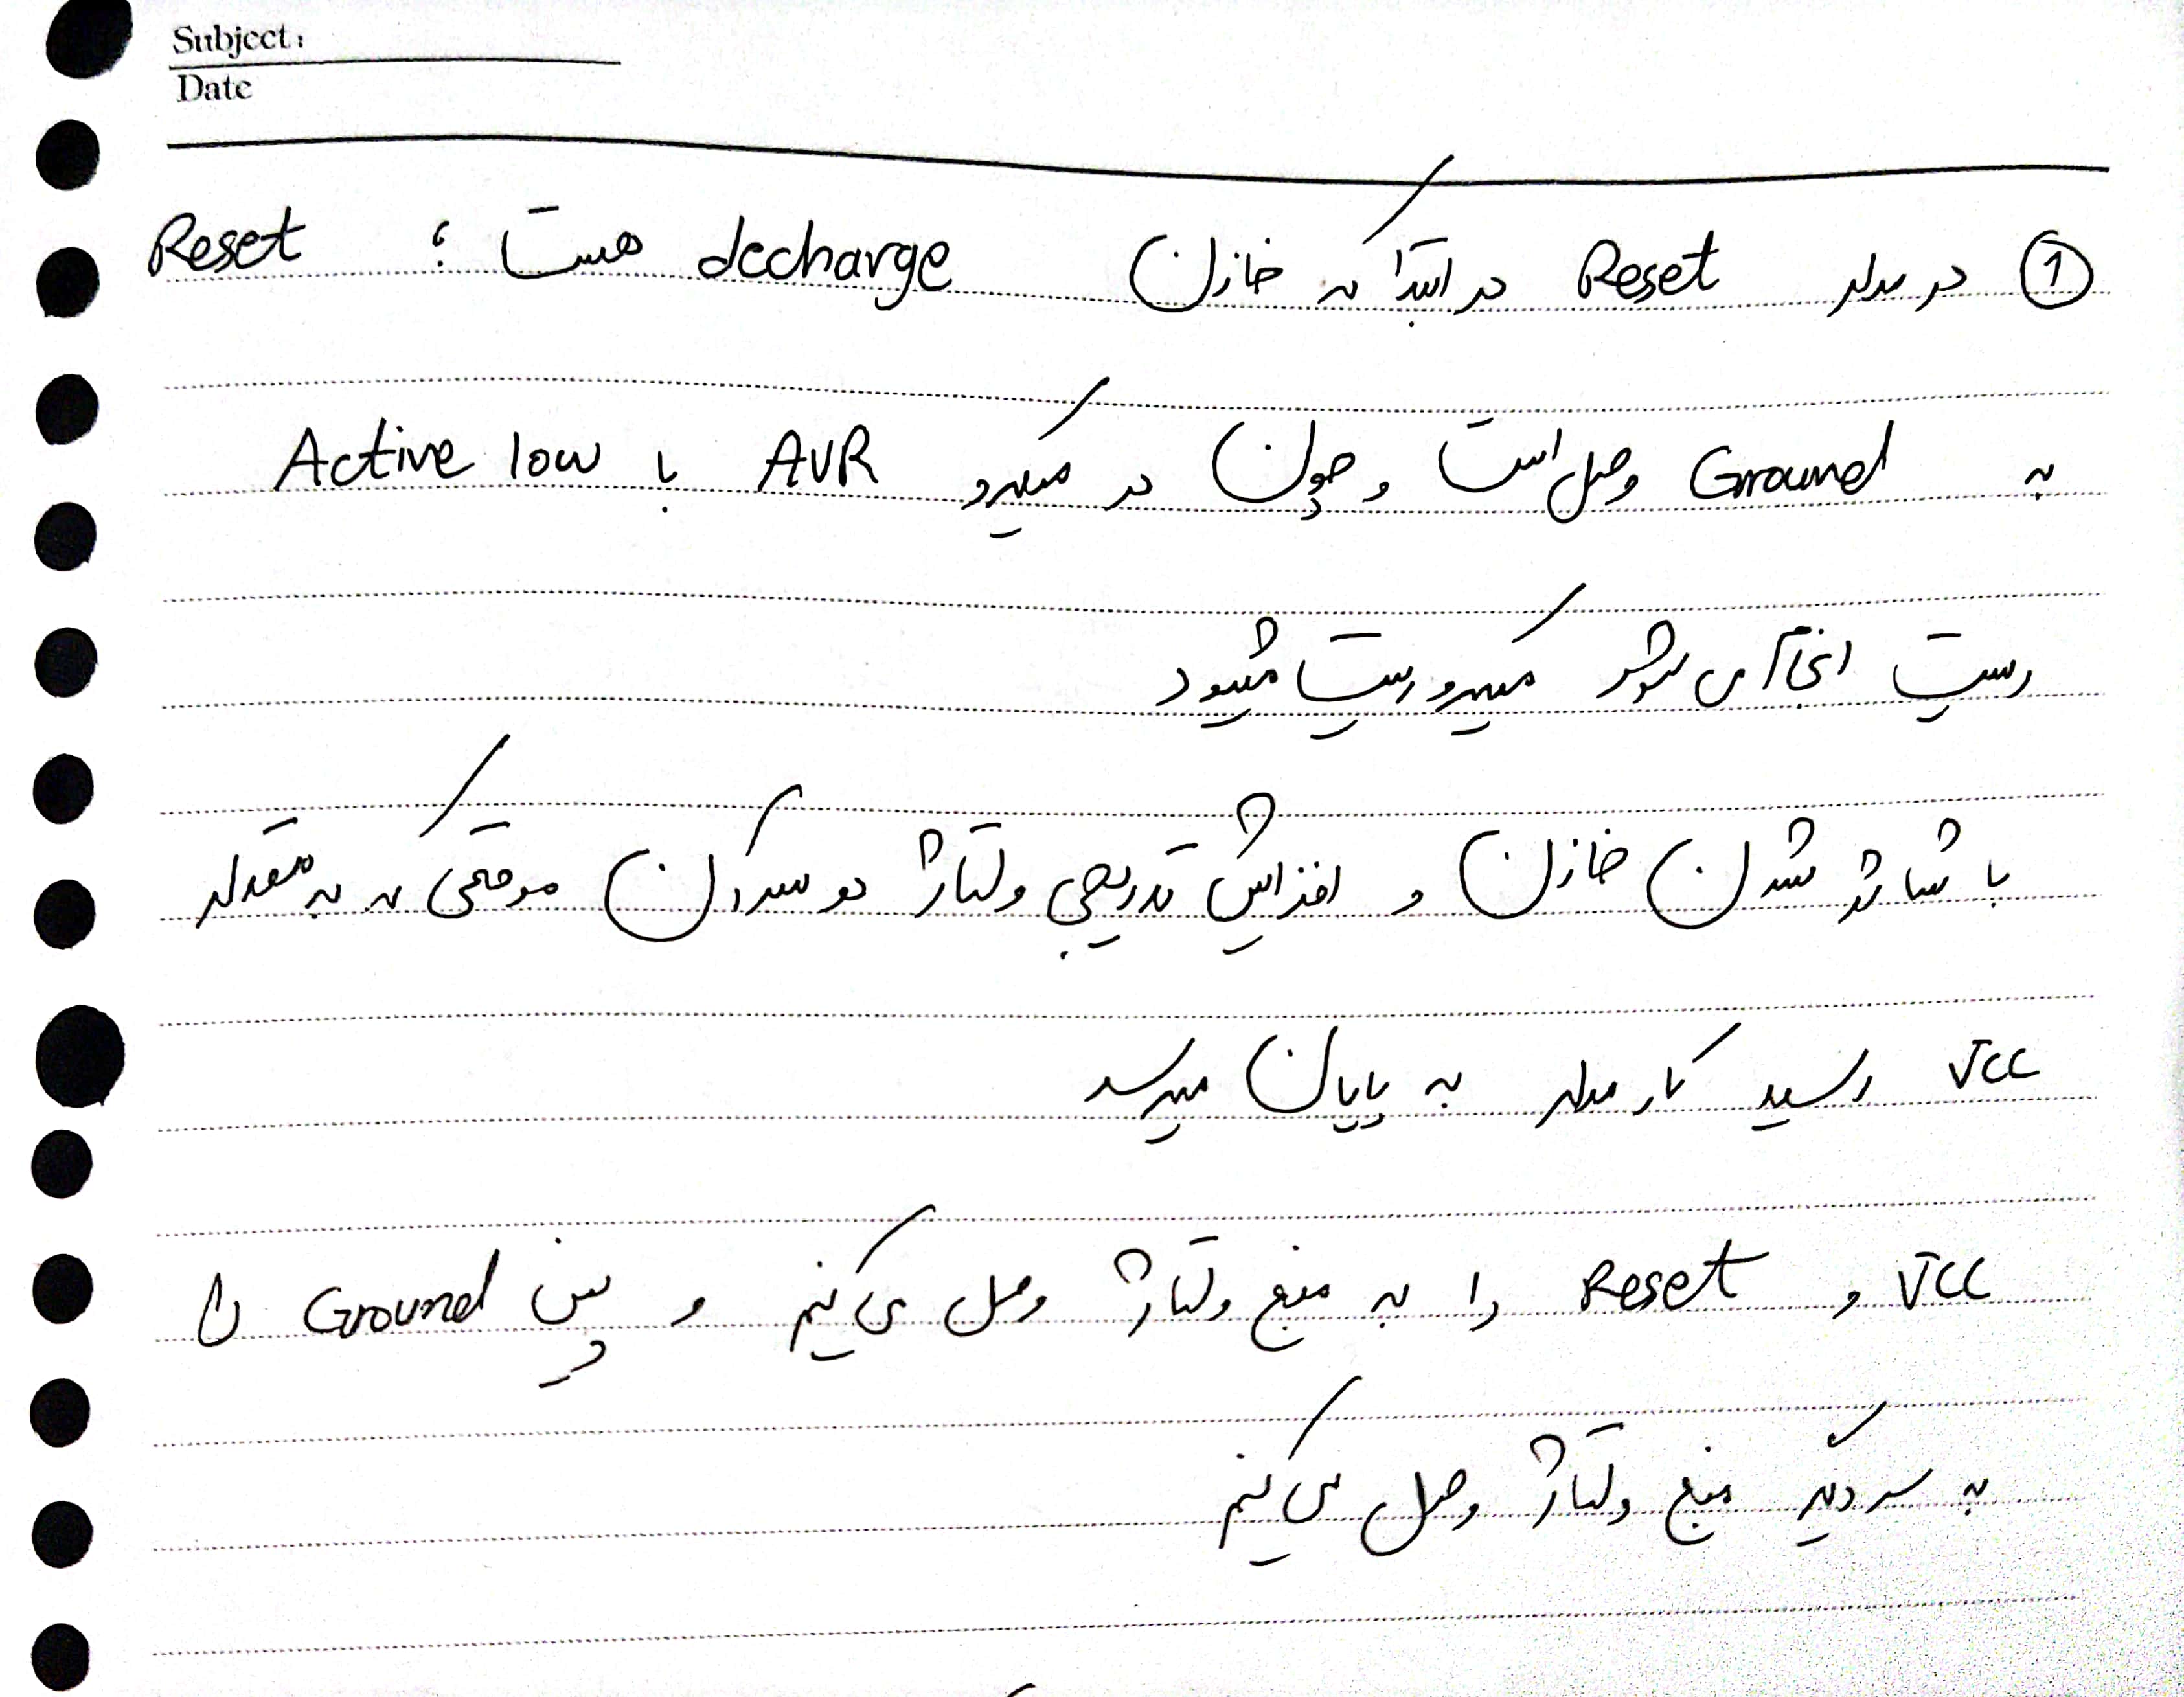 Subject:
Date
① در مدار Reset در ابتدا که خازن decharge هست ؛ Reset
به Ground وصل است و چون در میکرو AVR با Active low
ریست انجام می شود میکرو ریست میشود
با شارژ شدن خازن و افزایش تدریجی ولتاژ دو سر آن موقعی که به مقدار
VCC رسید کار مدار به پایان میرسد
VCC و Reset را به منبع ولتاژ وصل می کنیم و پین Ground را
به سر دیگر منبع ولتاژ وصل می کنیم